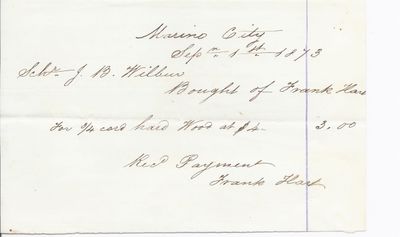 Marine City
Sepr. 1st. 1873
Schr. J. B. Wilbur
Bought of Frank Hart
For 3/4 cord hard Wood at $4. 3.00
Recd Payment
Frank Hart